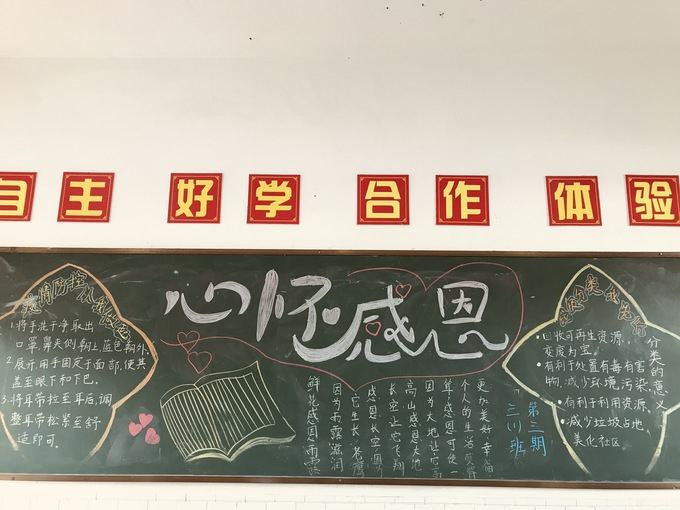 自主 好学 合作 体验
疫情防控 从我做起
1.将手洗干净取出
口罩,鼻夹侧朝上,蓝色朝外.
2.展示,用手固定于面部,使其
盖至眼下和下巴.
3.将耳带拉至耳后,调
整耳带松紧至舒
适即可.
心怀感恩
更加美好 幸福
个人的生活
尊,感恩可使一
因为大地让它高
高山感恩大地
长空让它飞翔
感恩长空,因为
它生长
因为雨露滋润
鲜花感恩雨露
第三期
三(1)班
垃圾分类 从我先行
分类的意义
回收可再生资源,
变废为宝.
有利于处置有毒有害
物,减少环境污染
有利于利用资源,
减少垃圾占地,
美化社区